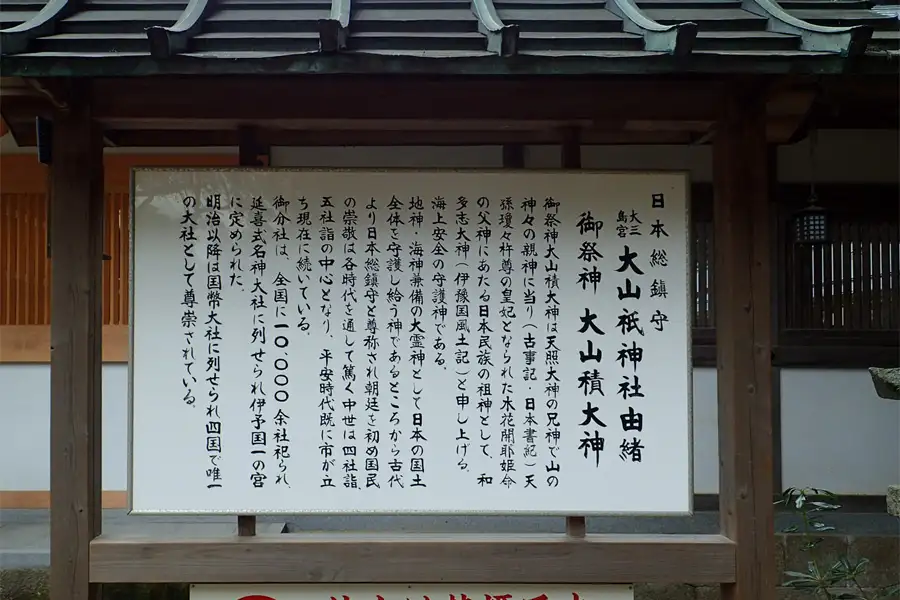 日本総鎮守
大三島宮 大山祇神社由緒
御祭神 大山積大神
御祭神大山積大神は天照大神の兄神で山の
神々の親神に当り(古事記・日本書紀)天
孫瓊々杵尊の皇妃となられた木花開耶姫命
の父神にあたる日本民族の祖神として、和
多志大神(伊豫国風土記)と申し上げる。
海上安全の守護神である。
地神・海神兼備の大霊神として日本の国土
全体を守護し給う神であるところから古代
より日本総鎮守と尊称され朝廷を初め国民
の崇敬は各時代を通して篤く中世は四社詣、
五社詣の中心となり、平安時代既に市が立
ち現在に続いている。
御分社は、全国に一〇、〇〇〇余社祀られ、
延喜式名神大社に列せられ伊予国一の宮
に定められた。
明治以降は国幣大社に列せられ四国で唯一
の大社として尊崇されている。